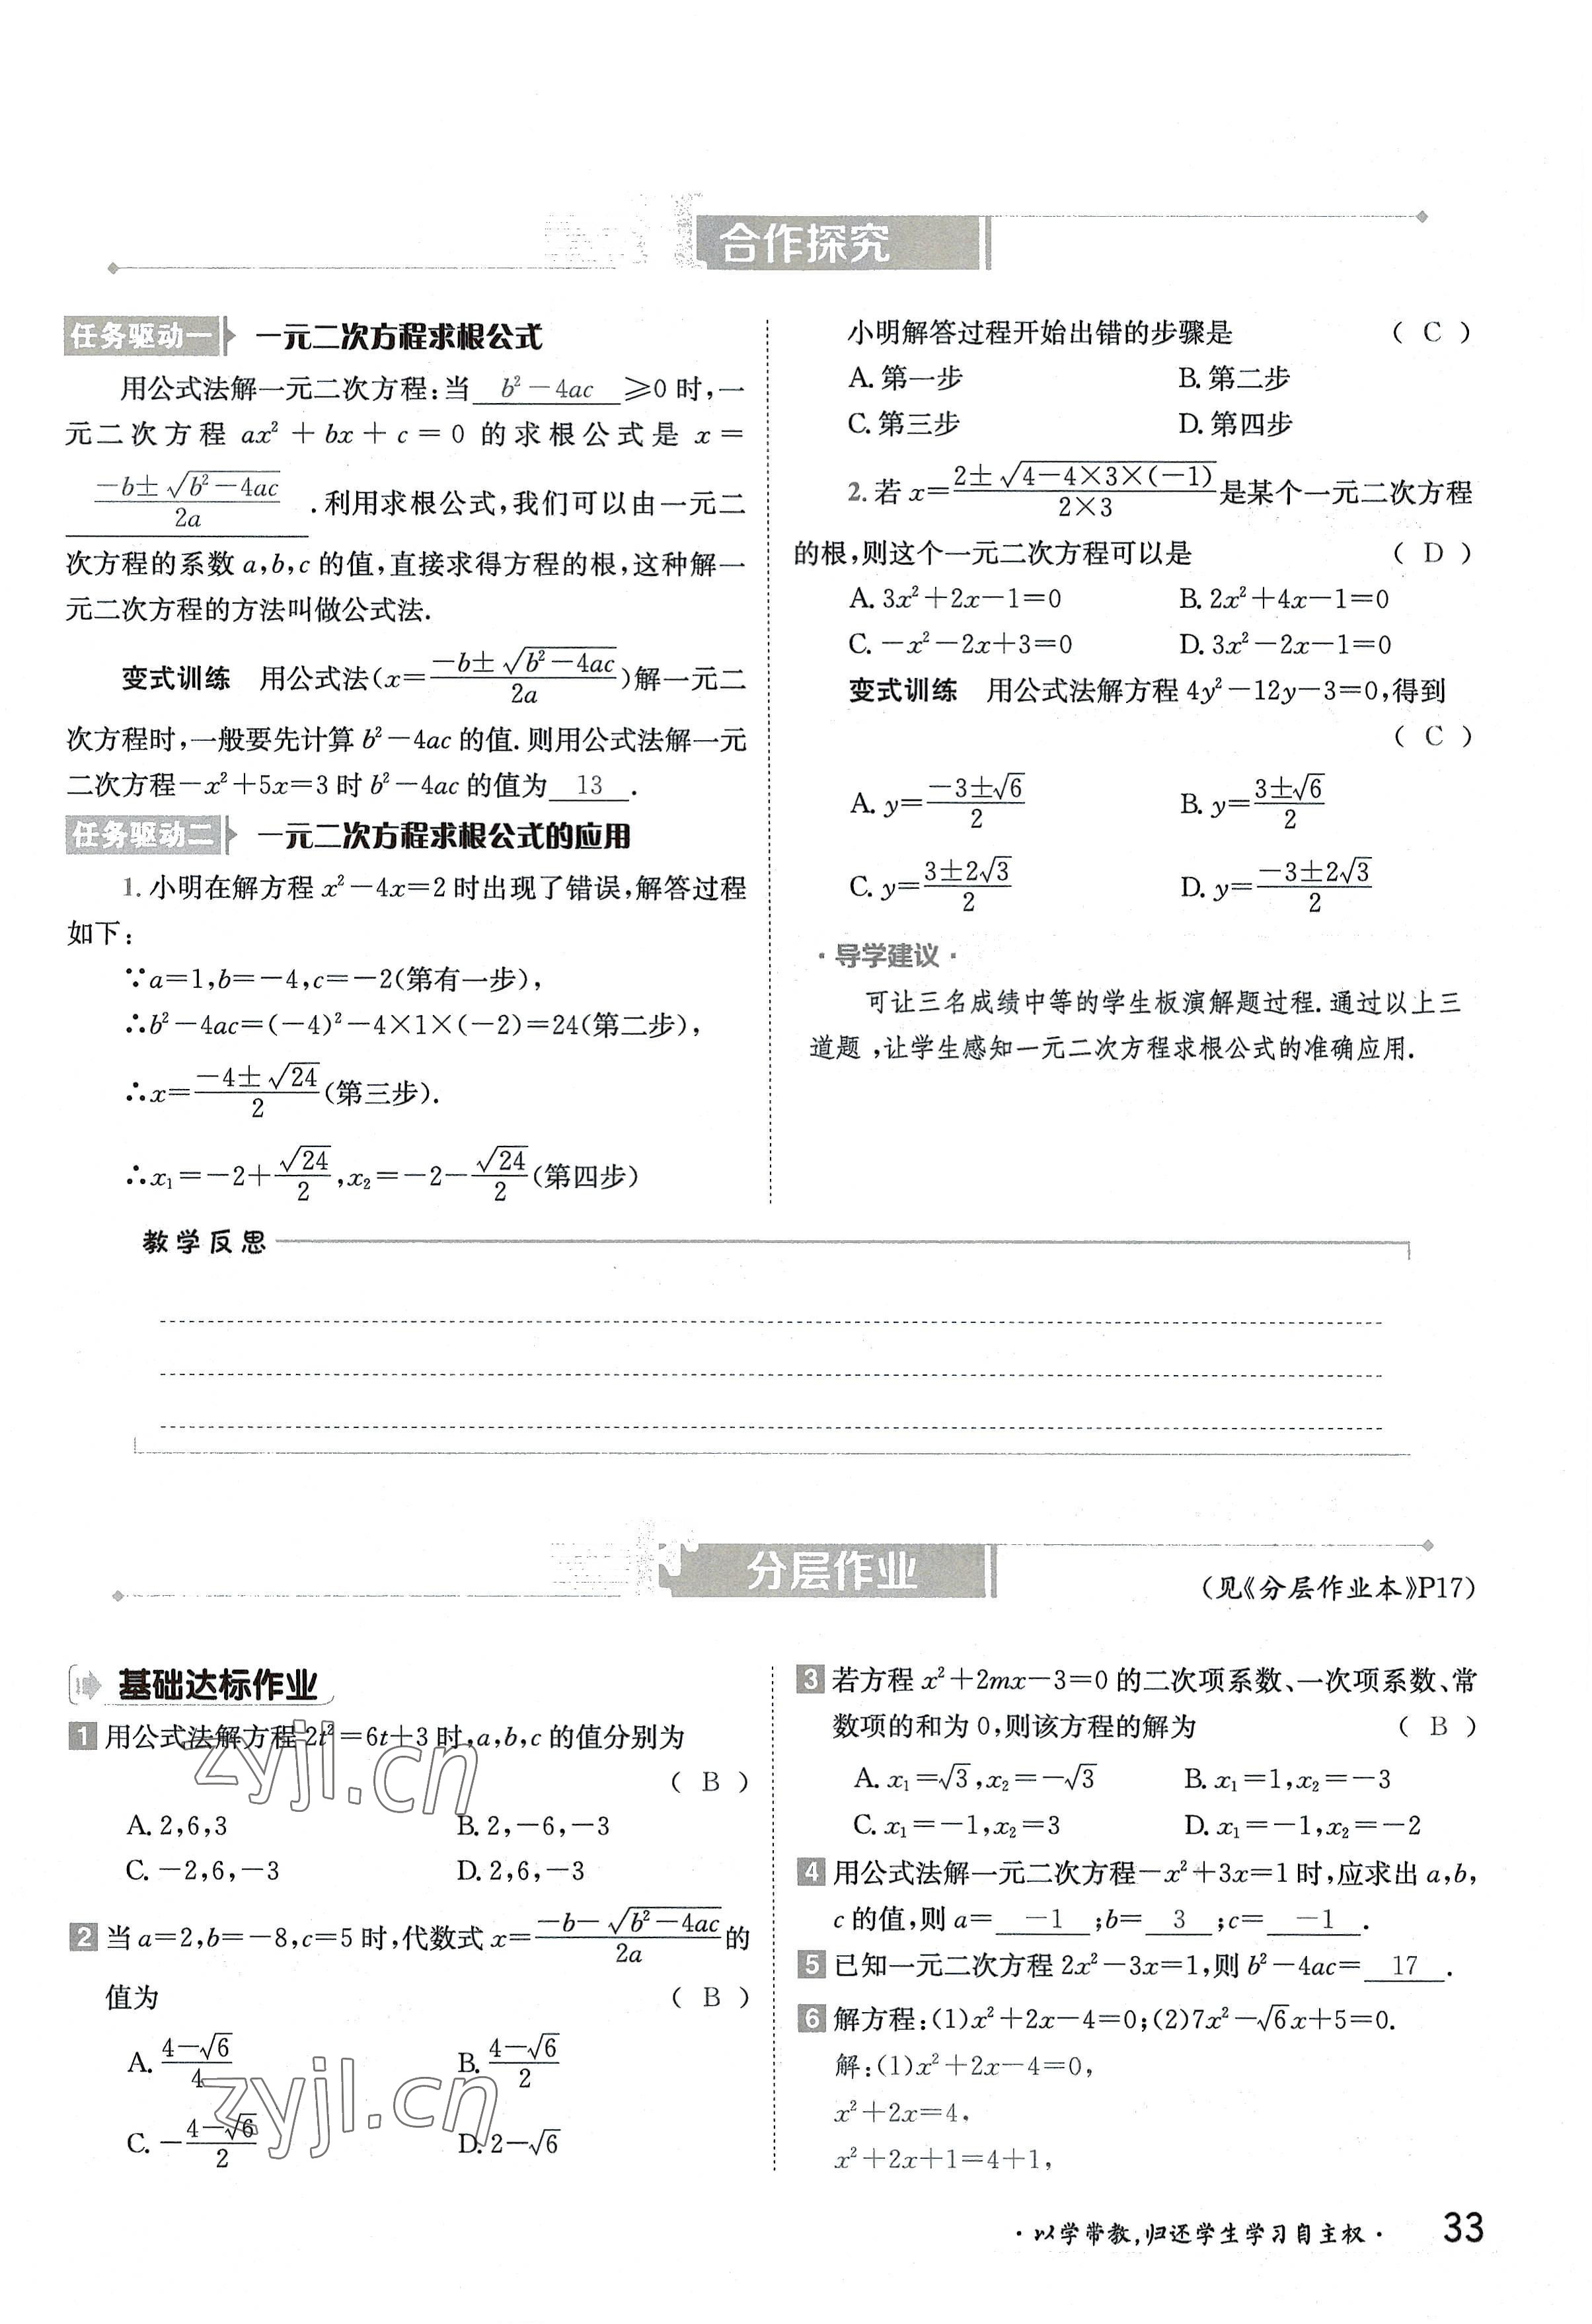 合作探究
任务驱动一 一元二次方程求根公式
用公式法解一元二次方程:当 b²-4ac ≥0时,一
元二次方程 ax²+bx+c=0 的求根公式是 x=
(-b±√(b²-4ac))/(2a) .利用求根公式,我们可以由一元二
次方程的系数a,b,c的值,直接求得方程的根,这种解一
元二次方程的方法叫做公式法.
变式训练 用公式法(x=(-b±√(b²-4ac))/(2a))解一元二
次方程时,一般要先计算b²-4ac的值.则用公式法解一元
二次方程-x²+5x=3时b²-4ac的值为 13 .
任务驱动二 一元二次方程求根公式的应用
1.小明在解方程x²-4x=2时出现了错误,解答过程
如下:
∵a=1,b=-4,c=-2(第有一步),
∴b²-4ac=(-4)²-4×1×(-2)=24(第二步),
∴x=(-4±√24)/2(第三步).
∴x₁=-2+√24/2,x₂=-2-√24/2(第四步)
小明解答过程开始出错的步骤是 ( C )
A.第一步 B.第二步
C.第三步 D.第四步
2.若x=(2±√(4-4×3×(-1)))/(2×3)是某个一元二次方程
的根,则这个一元二次方程可以是 ( D )
A.3x²+2x-1=0 B.2x²+4x-1=0
C.-x²-2x+3=0 D.3x²-2x-1=0
变式训练 用公式法解方程4y²-12y-3=0,得到
( C )
A.y=(-3±√6)/2 B.y=(3±√6)/2
C.y=(3±2√3)/2 D.y=(-3±2√3)/2
·导学建议·
可让三名成绩中等的学生板演解题过程.通过以上三
道题,让学生感知一元二次方程求根公式的准确应用.
教学反思
分层作业
(见《分层作业本》P17)
基础达标作业
1 用公式法解方程2t²=6t+3时,a,b,c的值分别为
( B )
A.2,6,3 B.2,-6,-3
C.-2,6,-3 D.2,6,-3
2 当a=2,b=-8,c=5时,代数式x=(-b-√(b²-4ac))/(2a)的
值为 ( B )
A.(4-√6)/4 B.(4-√6)/2
C.-(4-√6)/2 D.2-√6
3 若方程x²+2mx-3=0的二次项系数、一次项系数、常
数项的和为0,则该方程的解为 ( B )
A.x₁=√3,x₂=-√3 B.x₁=1,x₂=-3
C.x₁=-1,x₂=3 D.x₁=-1,x₂=-2
4 用公式法解一元二次方程-x²+3x=1时,应求出a,b,
c的值,则a= -1 ;b= 3 ;c= -1 .
5 已知一元二次方程2x²-3x=1,则b²-4ac= 17 .
6 解方程:(1)x²+2x-4=0;(2)7x²-√6x+5=0.
解:(1)x²+2x-4=0,
x²+2x=4,
x²+2x+1=4+1,
·以学带教,归还学生学习自主权· 33
zyjl.cn
zyjl.cn